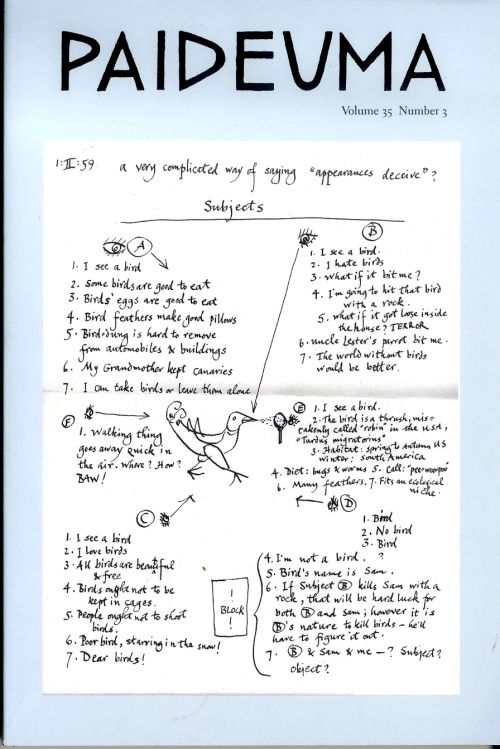 PAIDEUMA
Volume 35 Number 3
1:II:59 a very complicated way of saying "appearances deceive"?
Subjects
A
1. I see a bird
2. Some birds are good to eat
3. Birds' eggs are good to eat
4. Bird feathers make good pillows
5. Bird-dung is hard to remove
from automobiles & buildings
6. My Grandmother kept canaries
7. I can take birds or leave them alone
B
1. I see a bird.
2. I hate birds
3. What if it bit me?
4. I'm going to hit that bird
with a rock.
5. what if it got loose inside
the house? TERROR
6. uncle Lester's parrot bit me.
7. The world without birds
would be better.
F
1. Walking thing
goes away quick in
the air. Where? How?
BAW!
E
1. I see a bird.
2. The bird is a thrush, mis-
takenly called "robin" in the USA,
"Turdus migratorius"
3. Habitat: spring to Autumn US
winter: South America
4. Diet: bugs & worms 5. Call:
6. Many feathers. 7. Fits an ecological
niche.
C
1. I see a bird
2. I love birds
3. All birds are beautiful
& free
4. Birds ought not to be
kept in cages.
5. People ought not to shoot
birds.
6. Poor bird, starving in the snow!
7. Dear birds!
D
1. Bird
2. No bird
3. Bird
!
BLOCK
!
4. I'm not a bird. ?
5. Bird's name is Sam.
6. If Subject B kills Sam with a
rock, that will be hard luck for
both B and Sam; however it is
B's nature to kill birds – he'll
have to figure it out.
7. B & Sam & me —? Subject?
object?